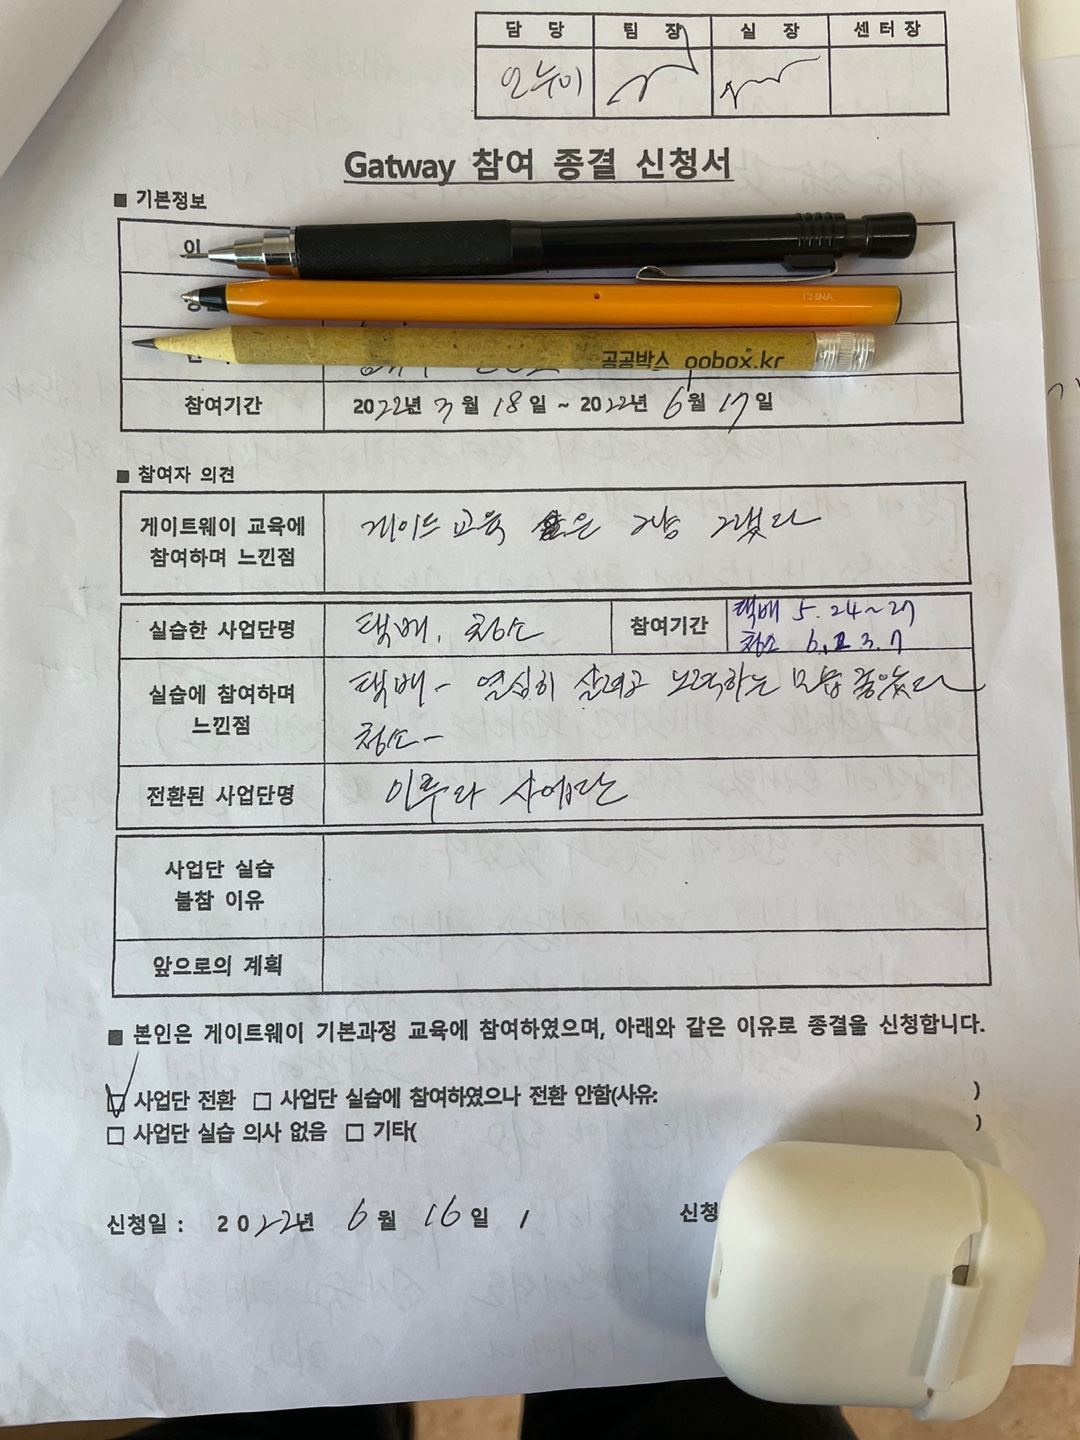 담 당 팀 장 실 장 센 터 장
Gatway 참여 종결 신청서
■ 기본정보
이
공공박스 oobox.kr
참여기간 2022년 3월 18일 ~ 2022년 6월 17일
■ 참여자 의견
게이트웨이 교육에 참여하며 느낀점
게이트 교육 은 그냥 그랬다
실습한 사업단명 택배, 청소 참여기간 택배 5. 24~27
청소 6. 2 3. 7
실습에 참여하며 느낀점
택배- 열심히 살려고 노력하는 모습 좋았다
청소-
전환된 사업단명 이루라 사업단
사업단 실습
불참 이유
앞으로의 계획
■ 본인은 게이트웨이 기본과정 교육에 참여하였으며, 아래와 같은 이유로 종결을 신청합니다.
☑ 사업단 전환 □ 사업단 실습에 참여하였으나 전환 안함(사유: )
□ 사업단 실습 의사 없음 □ 기타( )
신청일 : 2022년 6월 16일 신청